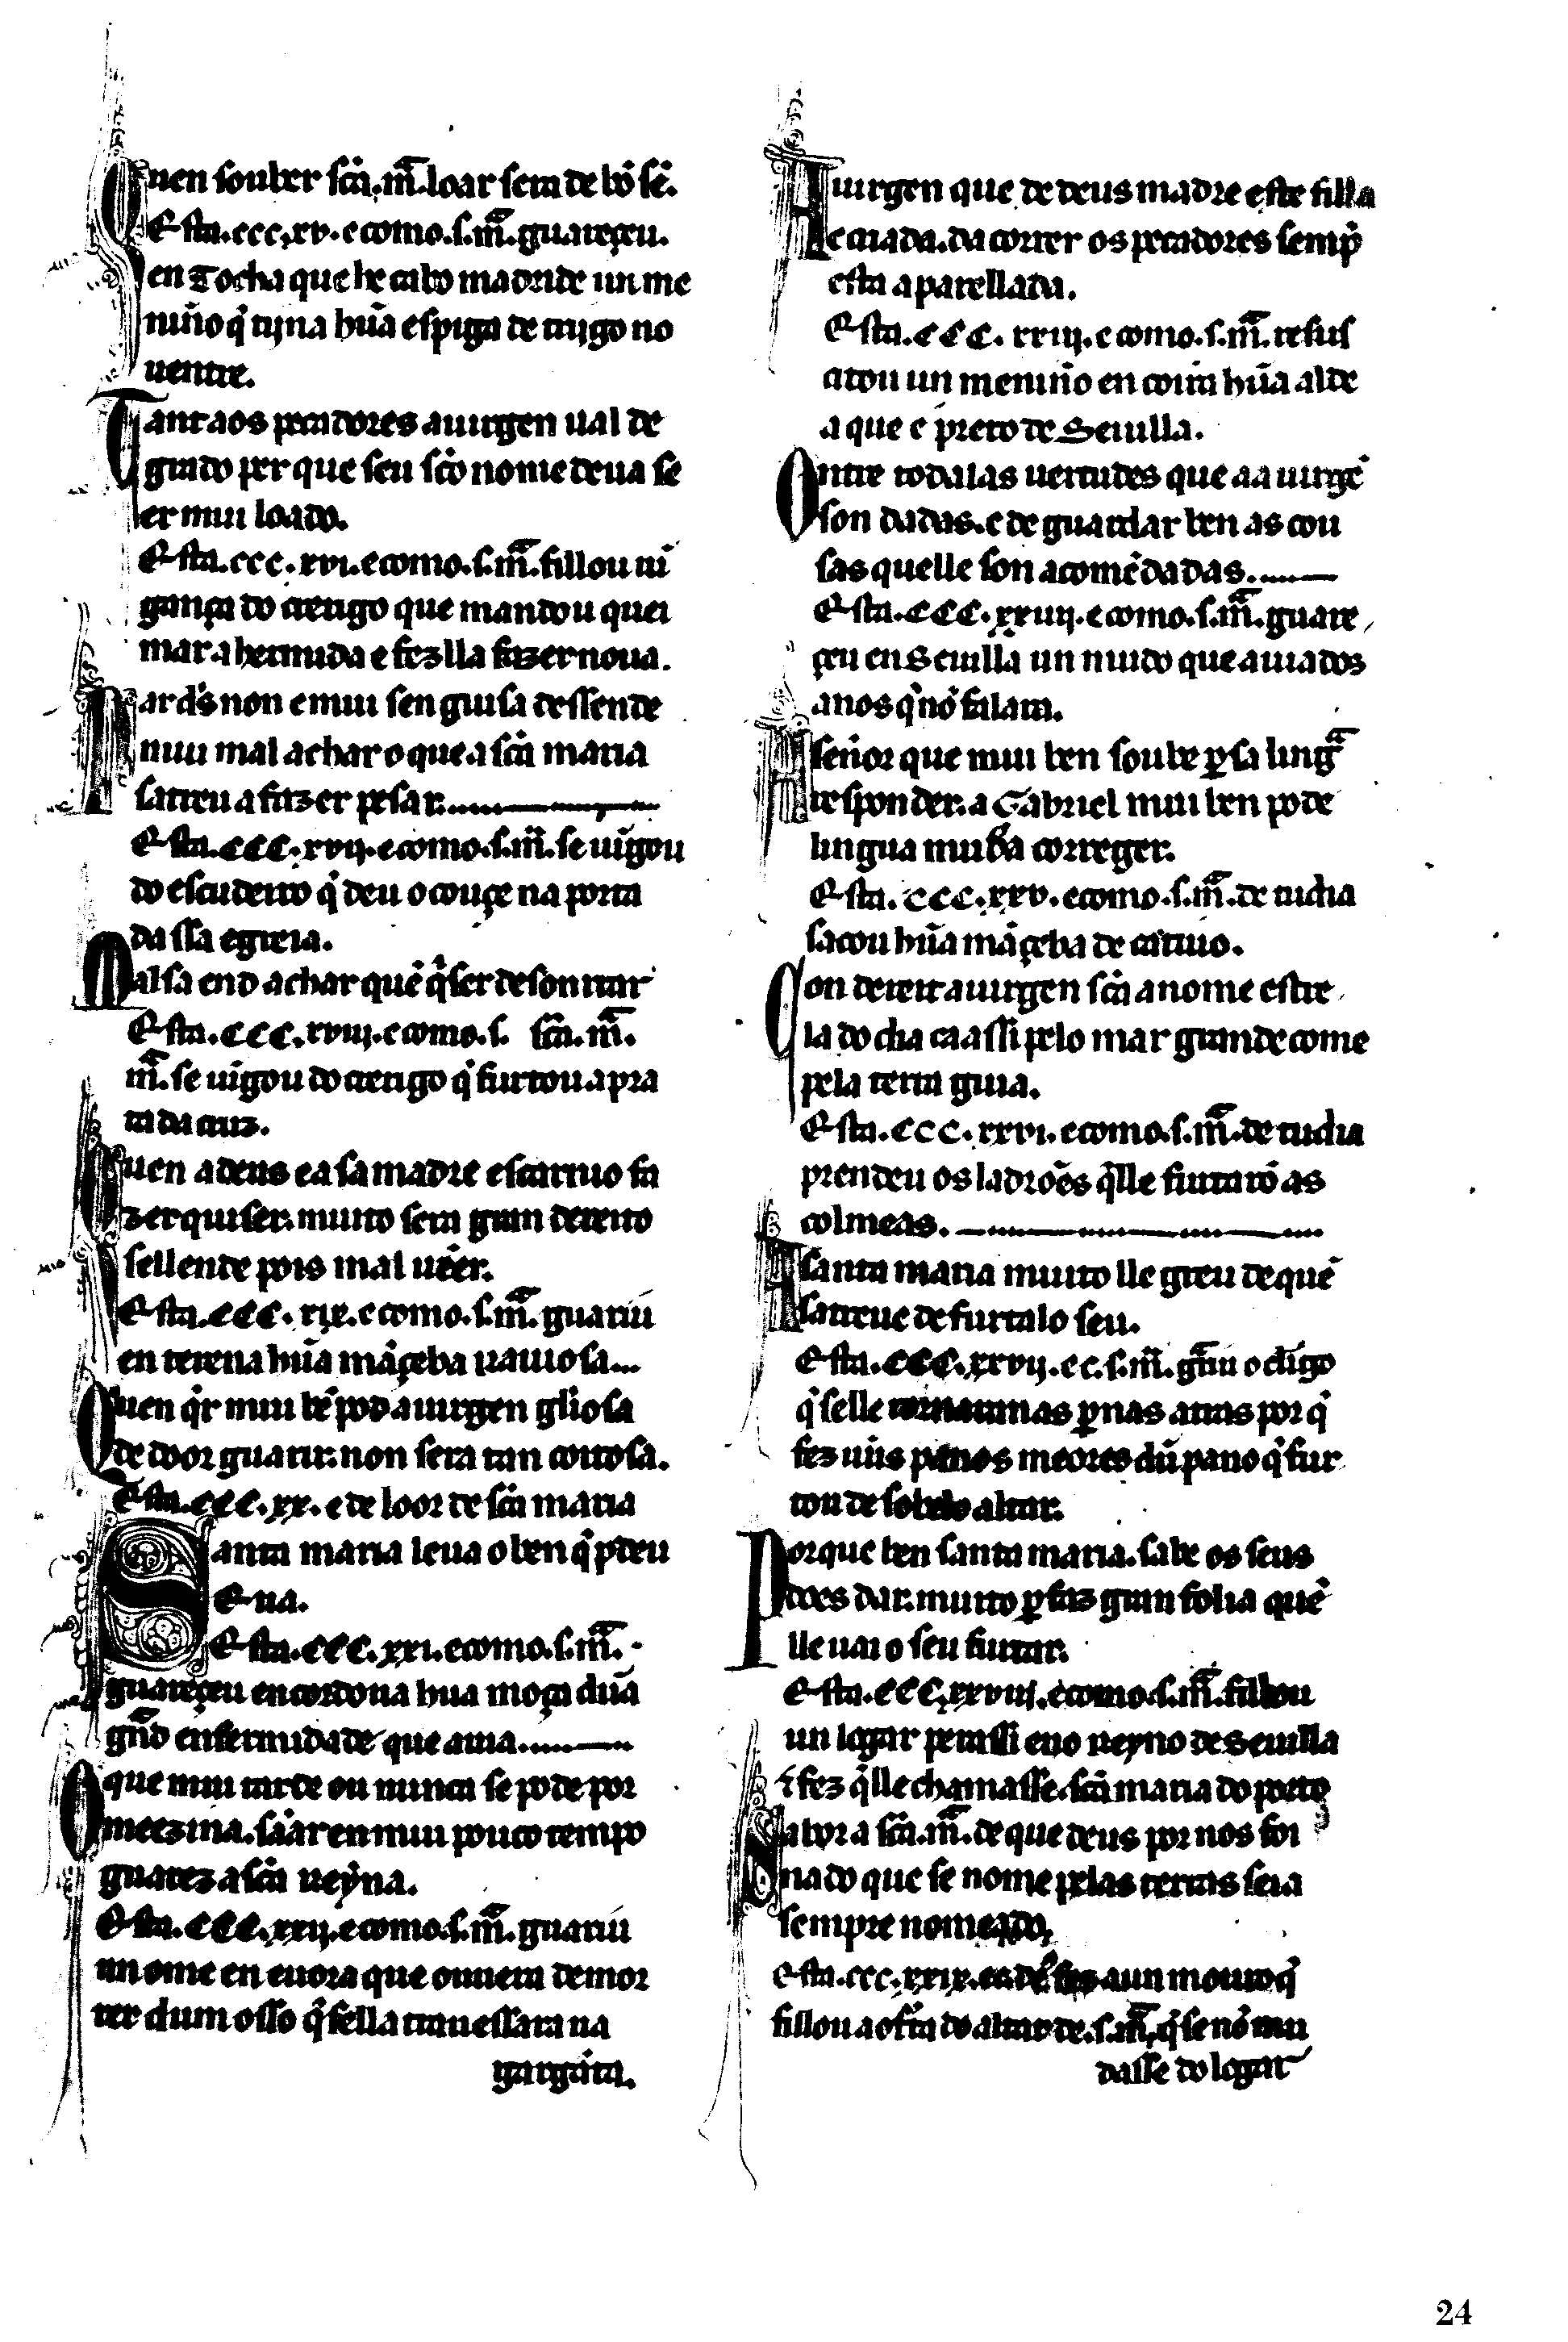 Quen souber scã. mã. loar sera de bõ sẽ.
Esta. ccc. xv. e como. s. mã. guareçeu.
en Tocha que he cabo madride un me
nino q̇ tijna hũa espiga de trijgo no
uentre.
Tant aos pecadores a uirgen ual de
grado per que seu scõ nome deua se
er mui loado.
Esta. ccc. xvi. e como. s. mã. fillou uĩ
gança do crerigo que mandou quei
mar a hermida e fezlla fazer noua.
Par d̃s non e mui sen guisa dessende
muu mal achar o que a scã maria
satreu a fazer pesar.
Esta. CCC. xvij. e como. s. mã. se uĩgou
do escudeiro q̇ deu o couçe na porta
da ssa egreia.
Mal sa end achar quẽ q̇ser desonrrar
Esta. CCC. xviij. e como. s. scã. mã.
mã. se uĩgou do crerigo q̇ furtou a pra
ta da cruz.
Quen a deus e a sa madre escarnno fa
zer quiser. muito sera gran dereito
sellende pois mal uẽer.
Esta. CCC. xix. e como. s. mã. guariu
en terena hũa mãçeba rauiosa...
Quen q̇r mui bẽ pod a uirgen gliosa
de door guarir. non sera tan coitosa.
Esta. CCC. xx. e de loor de scã maria
Santa maria leua o ben q̇ pdeu
Eua.
Esta. CCC. xxi. e como. s. mã.
guareçeu en cordoua hua moça dũa
grãd enfermidade que auia.
O que mui tarde ou nunca se pode por
meezina. sãar en mui pouco tempo
guarez a scã reyna.
Esta. CCC. xxij. e como. s. mã. guariu
un ome en euora que ouuera demor
rer dum osso q̇ sella trauessara na
garganta.
A uirgen que de deus madre este filla
e criada. da correr os pecadores semp̃
esta aparellada.
Esta. CCC. xxiij. e como. s. mã. resus
citou un menino en coira hũa alde
a que e preto de Seuilla.
Ontre todalas uertudes que aa uirgẽ
son dadas. e de guardar ben as cou
sas quelle son acomẽdadas.
Esta. CCC. xxiiij. e como. s. mã. guare
çeu en Seuilla un mudo que auia dos
anos q̇ nõ falara.
A señor que mui ben soube p̱ sa lingã
responder. a Gabriel mui ben pode
lingua muda correger.
Esta. CCC. xxv. e como. s. mã. de tudia
sacou hũa mãçeba de catiuo.
Con dereit a uirgen scã a nome estre
la do dia ca assi pelo mar grande come
pela terra guia.
Esta. CCC. xxvi. e como. s. mã. de tudia
prendeu os ladrões q̇lle furtarõ as
colmeas.
A santa maria muito lle greu de quẽ
satreue de furtalo seu.
Esta. CCC. xxvij. e c. s. mã. grãiu o cligo
q̇ selle tornaram as p̱nas atras por q̇
fez uũs panos meores dũ pano q̇ fur
tou de sobelo altar.
Porque ben santa maria. sabe os seus
dões dar. muito p̱ faz gran folia quẽ
lle uai o seu furtar.
Esta. CCC. xxviij. e como. s. mã. fillou
un logar pera ssi eno reyno de Seuilla
⁊ fez q̇lle chamasse. scã maria do porto
Sabor a scã. mã. de que deus por nos foi
nado que se nome pelas terras seia
sempre nomeado,
esta. ccc. xxix. fez a un mouro q̇
fillou a ofta do altar de. s. mã, q̇ se nõ mu
dasse do logar
24